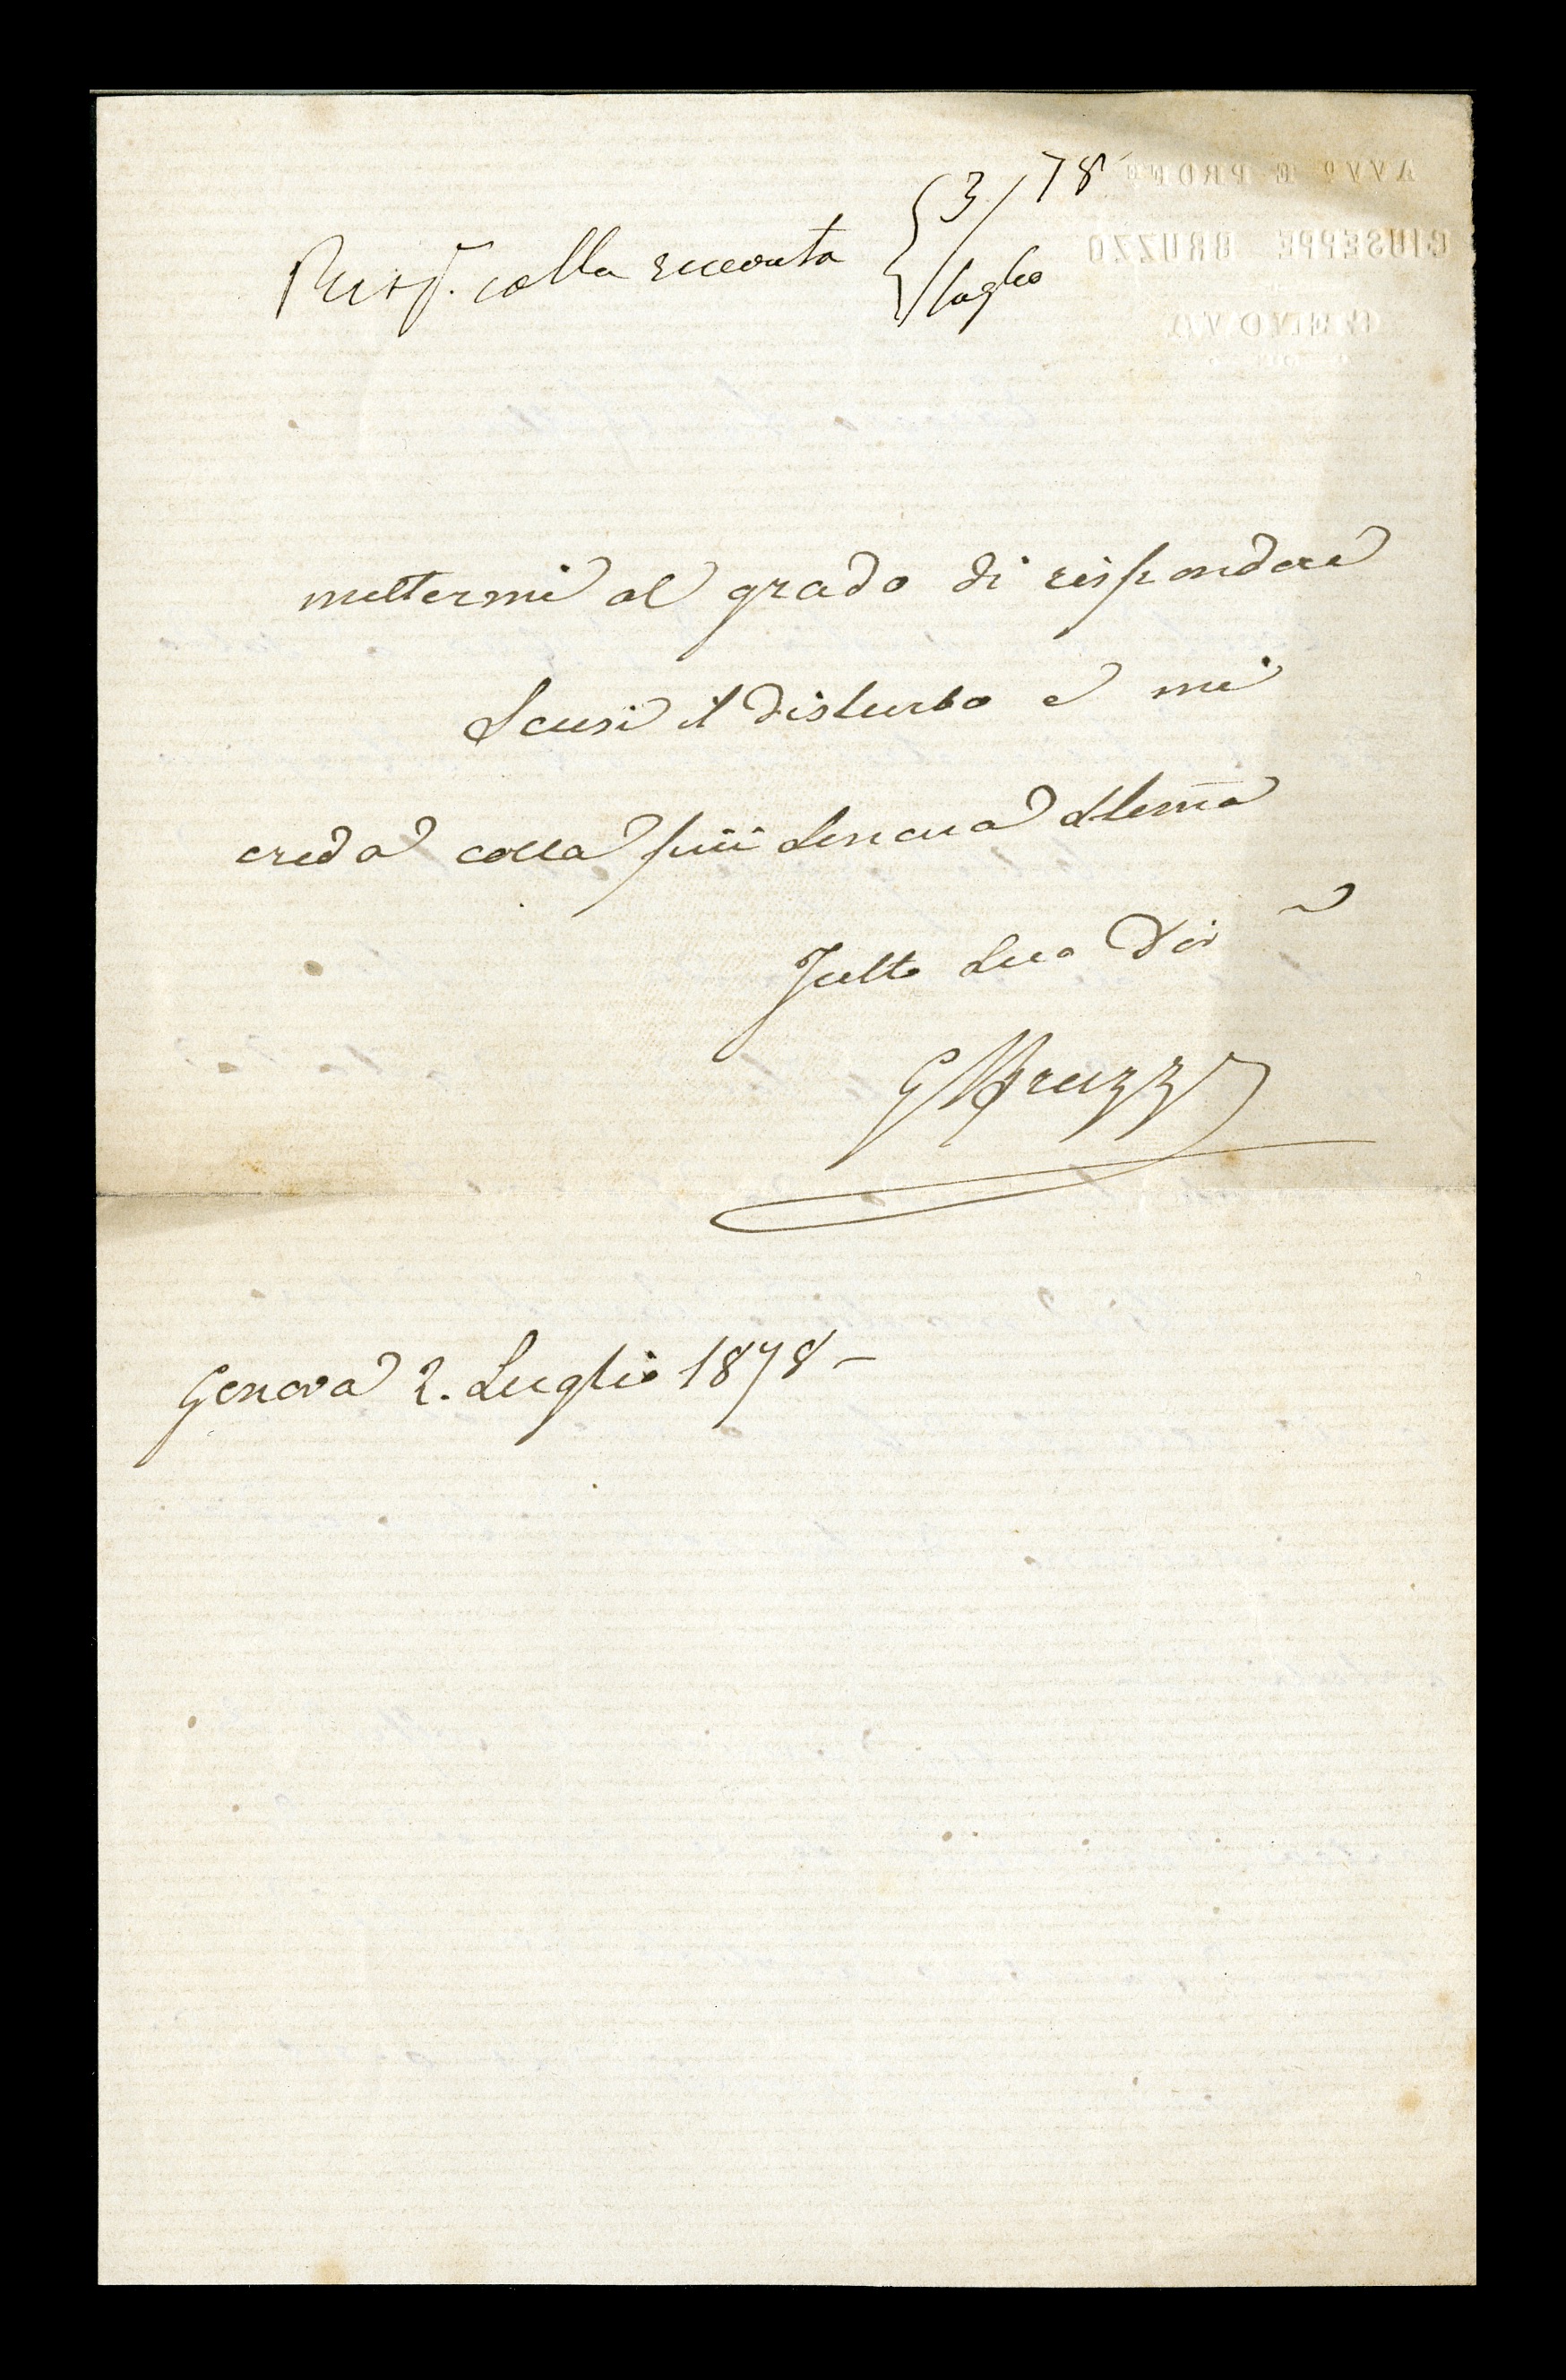 Risp. colla ricevuta 3/78
luglio
AVVO E PROFE
GIUSEPPE BRUZZO
GENOVA
mettermi al grado di rispondere
Scusi il disturbo e mi
creda colla più sincera stima
Tutto Suo Dev
G Bruzzo
Genova 2. Luglio 1878 –